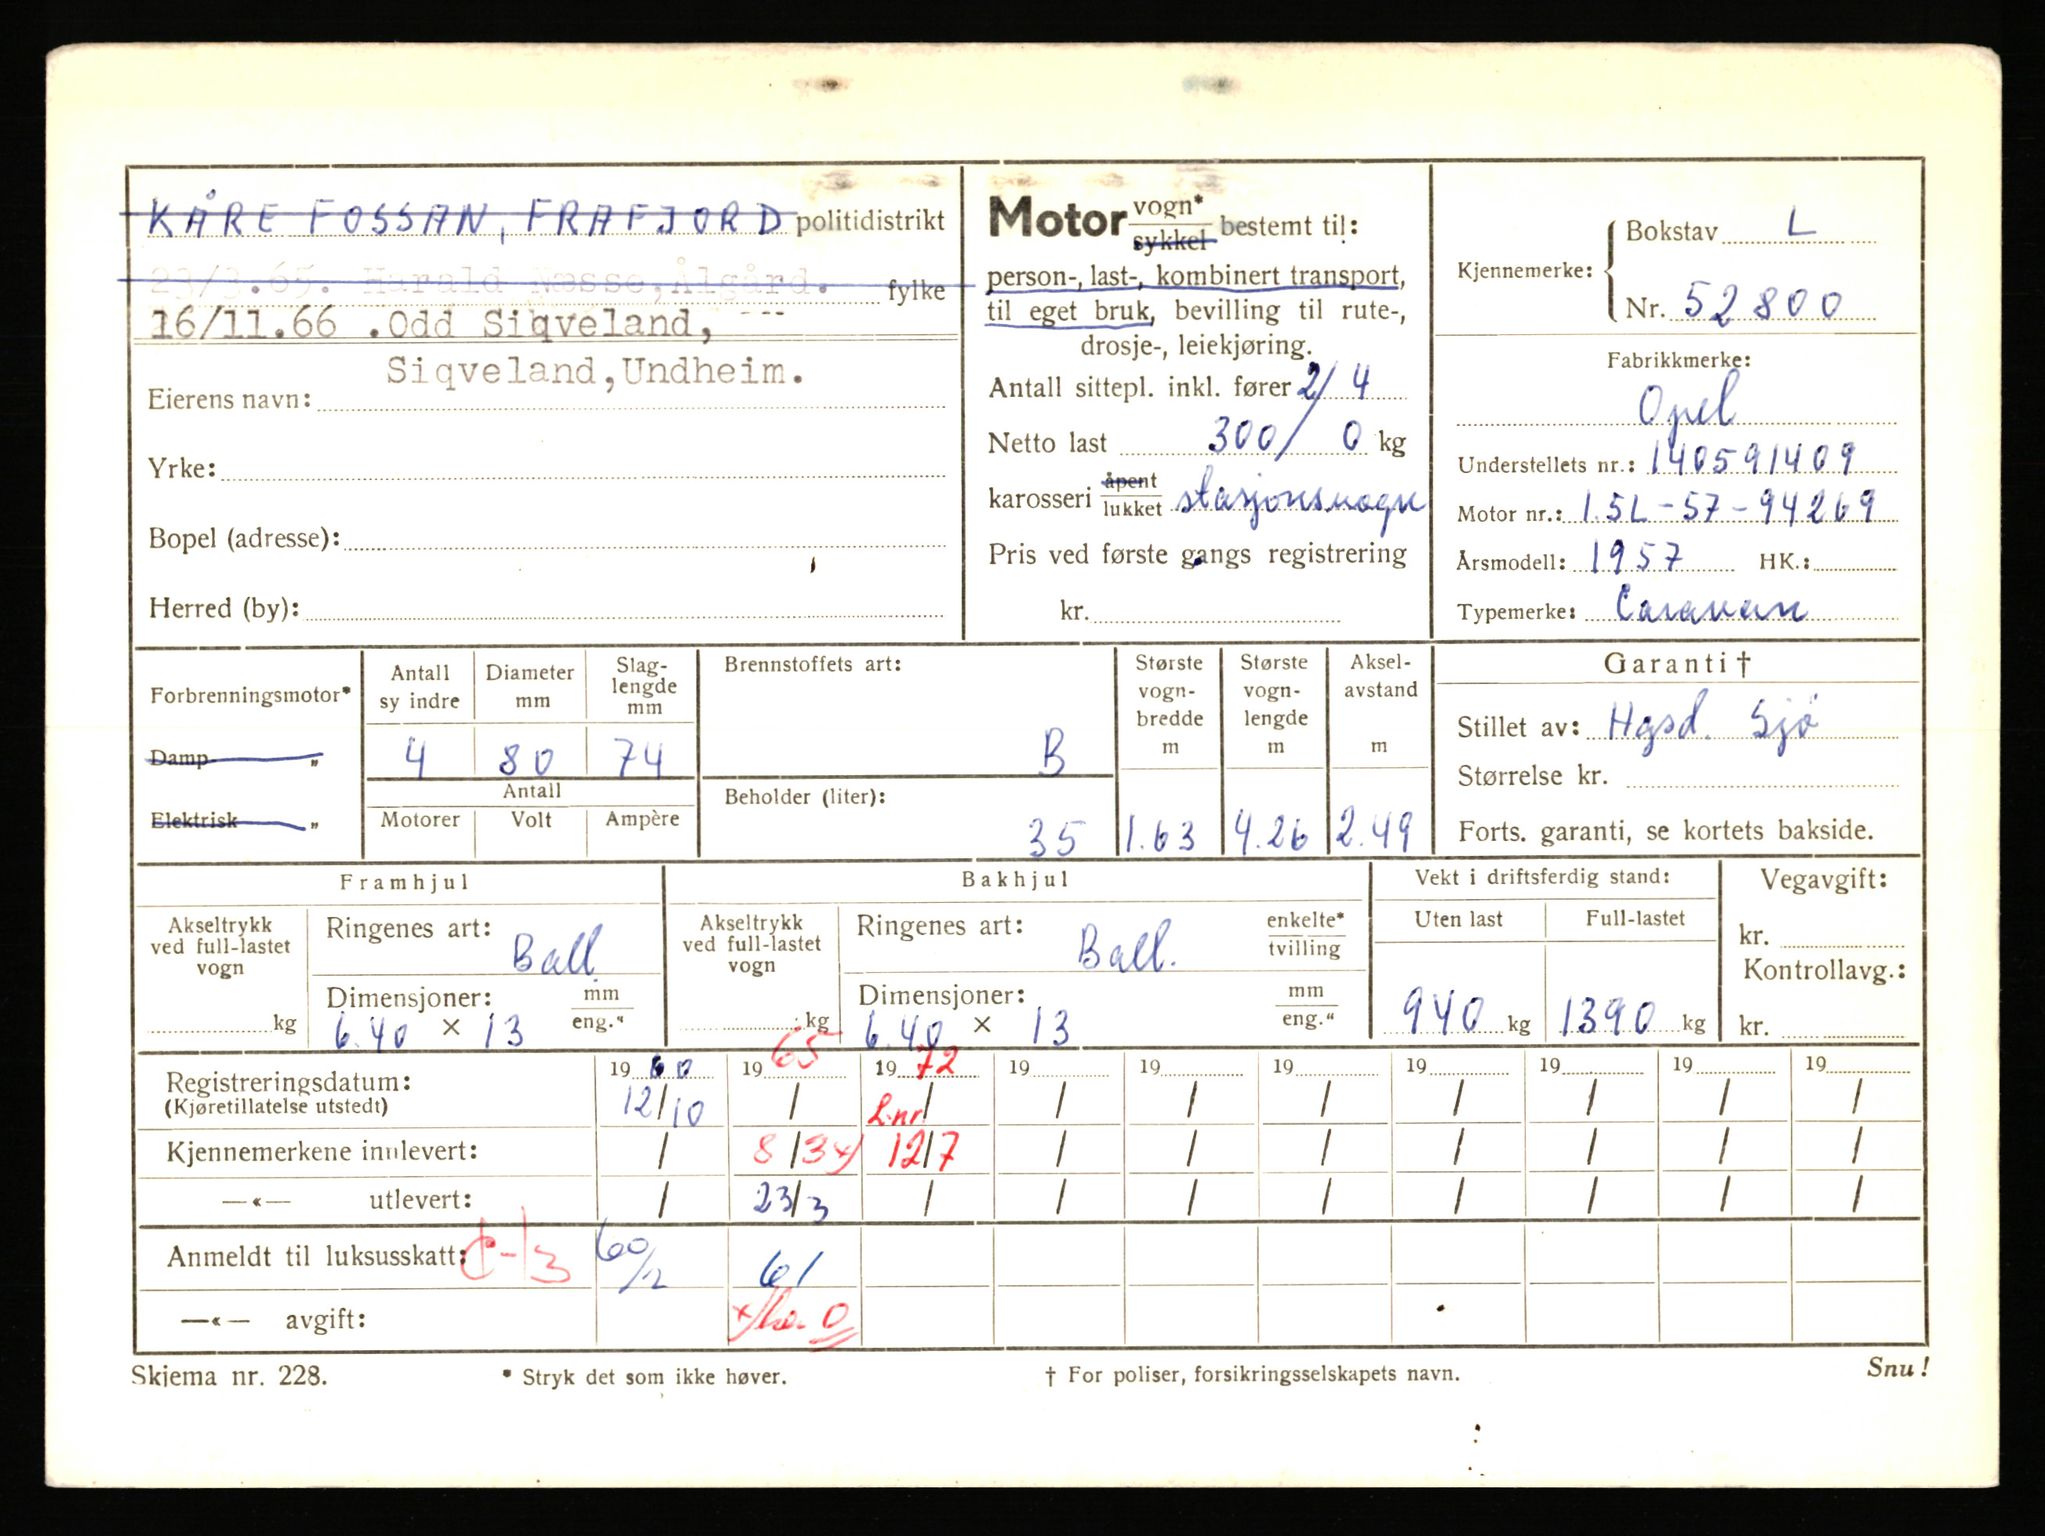 KÅRE FOSSAN, FRAFJORD politidistrikt
23/3.65. Harald Næsse, Ålgård. fylke
16/11.66 .Odd Siqveland,
Siqveland, Undheim.
Eierens navn:
Yrke:
Bopel (adresse):
Herred (by):
Motor vogn* / sykkel bestemt til:
person-, last-, kombinert transport,
til eget bruk, bevilling til rute-,
drosje-, leiekjøring.
Antall sittepl. inkl. fører 2/4
Netto last 300/0 kg
karosseri åpent / lukket stasjonsvogn
Pris ved første gangs registrering
kr.
Kjennemerke: Bokstav L
Nr. 52800
Fabrikkmerke:
Opel
Understellets nr.: 140591409
Motor nr.: 1.5L-57-94269
Årsmodell: 1957 HK.:
Typemerke: Caravan
Forbrenningsmotor*
Damp „
Elektrisk „
Antall sy indre Diameter mm Slag-lengde mm
4 80 74
Antall
Motorer Volt Ampère
Brennstoffets art:
B
Beholder (liter):
35
Største vogn-bredde m
1.63
Største vogn-lengde m
4.26
Aksel-avstand m
2.49
Garanti †
Stillet av: Hgsd. Sjø
Størrelse kr.
Forts. garanti, se kortets bakside.
Framhjul
Akseltrykk ved full-lastet vogn
kg
Ringenes art: Ball
Dimensjoner: mm / eng.“
6.40 × 13
Bakhjul
Akseltrykk ved full-lastet vogn
kg
Ringenes art: Ball. enkelte* / tvilling
Dimensjoner: mm / eng.“
6.40 × 13
Vekt i driftsferdig stand:
Uten last Full-lastet
940 kg 1390 kg
Vegavgift:
kr.
Kontrollavg.:
kr.
19 60 19 65 19 72 19 19 19 19 19 19 19
Registreringsdatum: 12/10 / L.nr/ / / / / / / /
(Kjøretillatelse utstedt)
Kjennemerkene innlevert: / 8/3 x) 12/7 / / / / / / /
—«— utlevert: / 23/3 / / / / / / / /
Anmeldt til luksusskatt: C-13 60/2 61
—«— avgift: x/ 0
Skjema nr. 228.
* Stryk det som ikke høver.
† For poliser, forsikringsselskapets navn.
Snu!